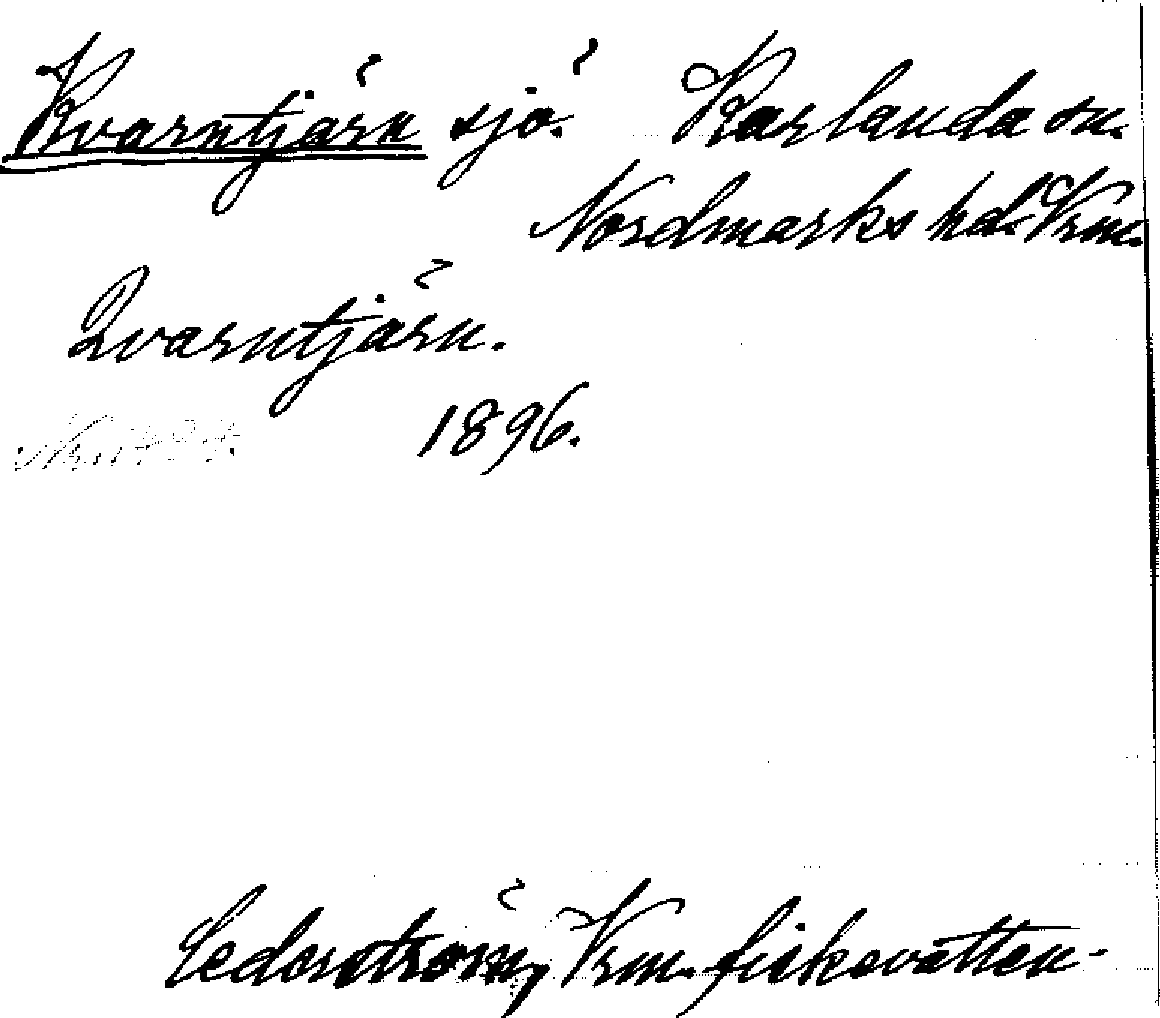 Kvarntjärn sjö. Karlanda sn.
Nordmarks hd. Vrm.
Qvarntjärn.
1896.
Cederström, Vrm. fiskevatten-